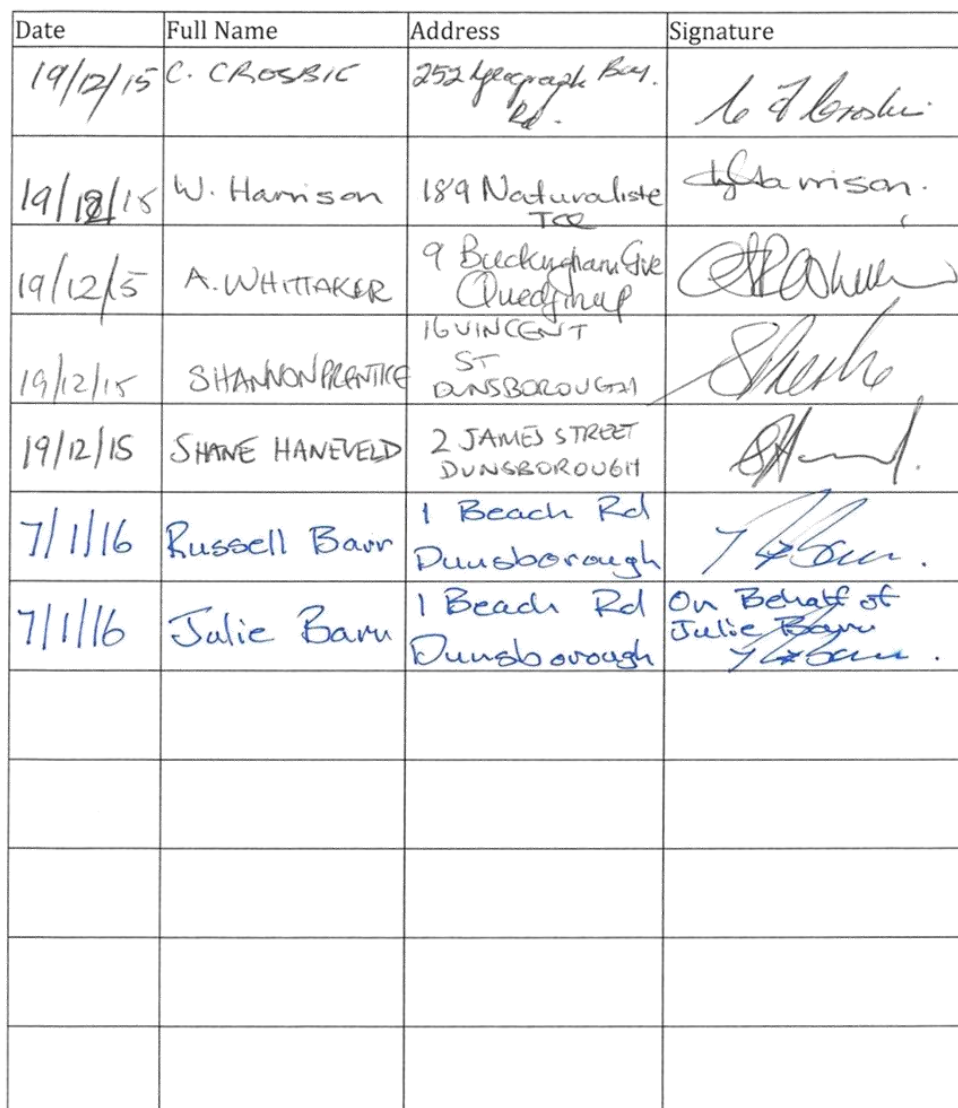 Date Full Name Address Signature
19/12/15 C. CROSBIE 252 Geograph Bay.
Rd.
19/12/15 W. Harrison 189 Naturaliste
Tce
Harrison.
19/12/15 A. WHITTAKER 9 Buckyngham Gve
Quedjinup
19/12/15 SHANNON PRENTICE 16 VINCENT
ST
DUNSBOROUGH
19/12/15 SHANE HANEVELD 2 JAMES STREET
DUNSBOROUGH
7/1/16 Russell Barr 1 Beach Rd
Dunsborough
7/1/16 Julie Barr 1 Beach Rd On Behalf of
Dunsborough Julie Barr